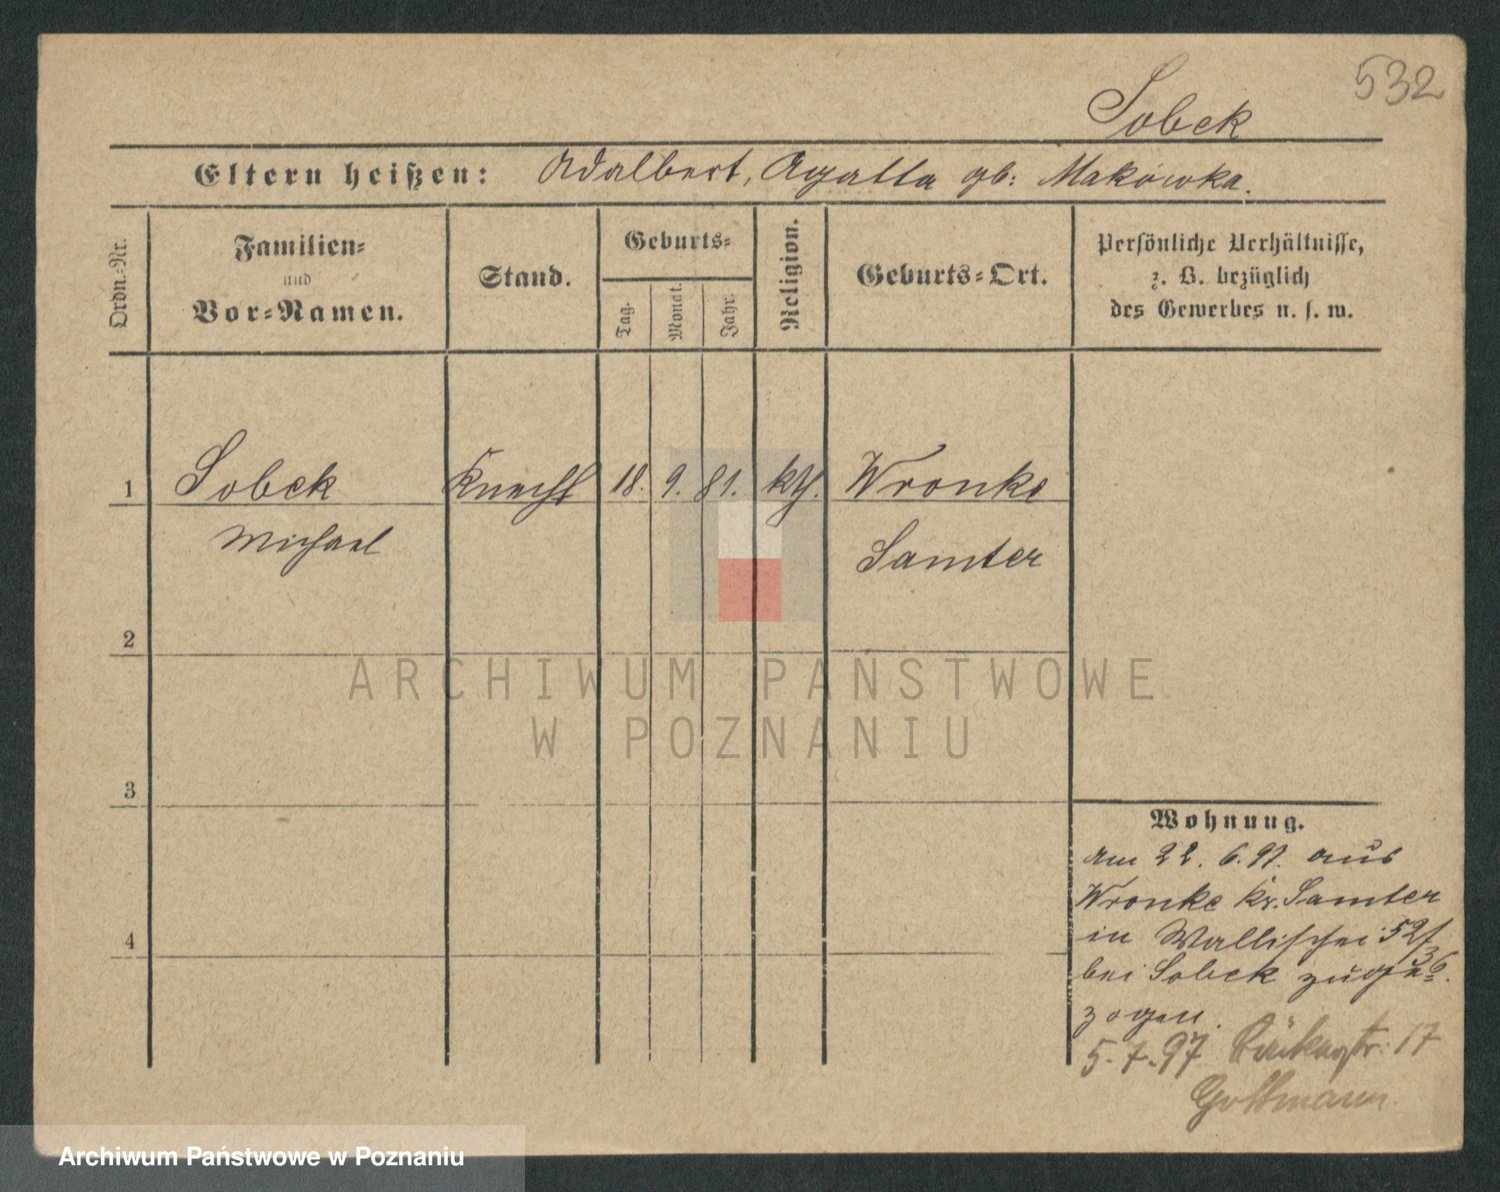 532
Sobek
Eltern heißen: Adalbert, Agatta gb: Makówka.
Ordn.-Nr.
Familien-
und
Vor-Namen.
Stand.
Geburts-
Tag.
Monat.
Jahr.
Religion.
Geburts-Ort.
Persönliche Verhältnisse,
z. B. bezüglich
des Gewerbes u. s. w.
1 Sobek Knecht 18. 9. 81. kth. Wronke
Michael Samter
2
3
4
ARCHIWUM PAŃSTWOWE
W POZNANIU
Wohnung.
am 22. 6. 97. aus
Wronke Kr. Samter
in Wallischei 52/
bei Sobek zuge=
zogen.
5.7.97 17
Archiwum Państwowe w Poznaniu